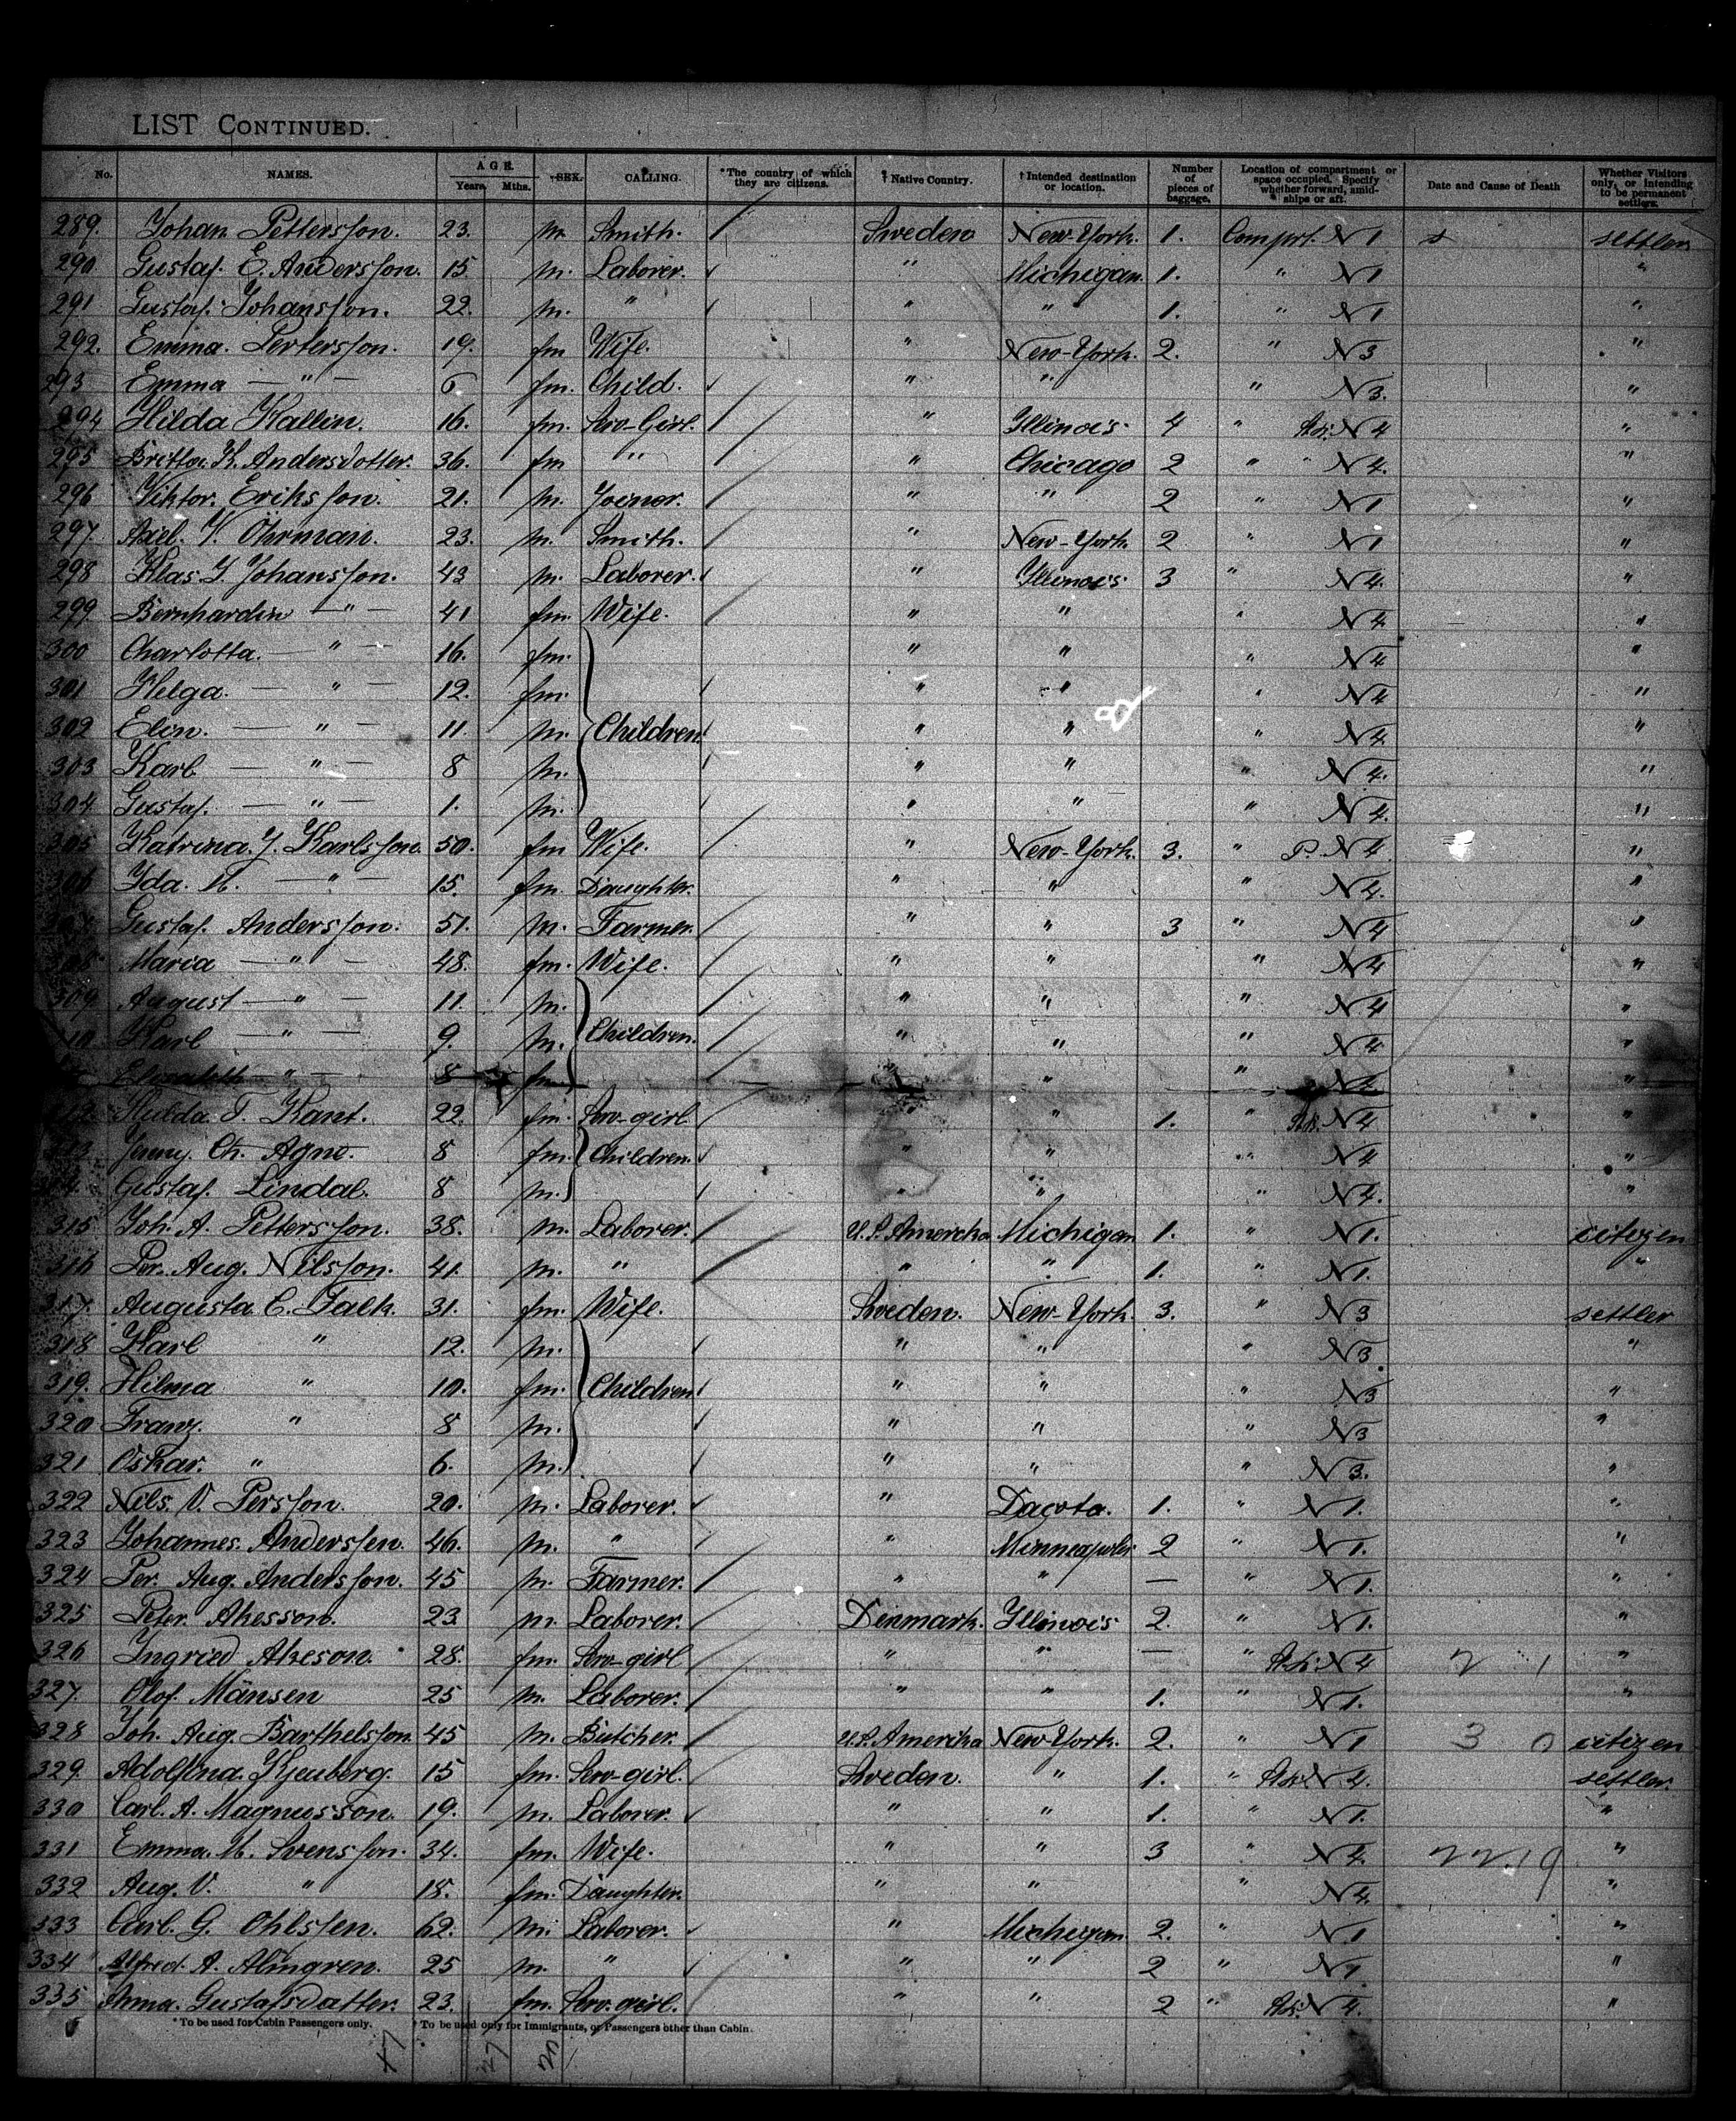 LIST CONTINUED.
No. NAMES. AGE. Years. Mths. SEX. CALLING. *The country of which they are citizens. † Native Country. † Intended destination or location. Number of pieces of baggage. Location of compartment or space occupied. Specify whether forward, amidships or aft. Date and Cause of Death Whether Visitors only, or intending to be permanent settlers.
289. Johan Pettersson. 23. m. Smith. Sweden New-York. 1. Comprt. N1 settler
290 Gustaf. E. Andersson. 15. m. Laborer. " Michigan. 1. " N1 "
291 Gustaf. Johansson. 22. m. " " " 1. " N1 "
292. Emma. Pertersson. 19. fm Wife. " New-York. 2. " N3 "
293 Emma — " — 6 fm. Child. " " " N3. "
294 Hilda Kallin. 16. fm. Serv-Girl. " Illinois. 4 " N4 "
295 Britta. K. Andersdotter. 36. fm " " Chicago 2 " " N4. "
296 Viktor. Eriksson. 21. m. Joiner. " " 2 " N1 "
297. Axel. V. Öhrman. 23. m. Smith. " New-York. 2 " N1 "
298 Klas. J. Johansson. 43 m. Laborer. " Illinois 3 " N4. "
299 Bernhardin — " — 41 fm. Wife. " " " N4. "
300 Charlotta. — " — 16. fm. " " " N4 "
301 Helga. — " — 12. fm. " " " N4 "
302 Elin. — " — 11. m. Children. " " " N4. "
303 Karl — " — 8 m. " " " N4. "
304 Gustaf. — " — 1. m. " " " N4. "
305 Katrina. J. Karlsson. 50. fm Wife. " New-York. 3. " P. N4 "
306 Ida. M. — " — 15. fm. Daughter. " " " N4. "
307. Gustaf. Andersson. 51. m. Farmer. " " 3 " N4 "
308 Maria — " — 48. fm. Wife. " " " N4 "
309. August — " — 11. m. " " " N4 "
310 Karl — " — 9. m. Children. " " " N4 "
Elisabeth — " — 8 fm. " " " N4 "
312 Hulda. T. Kant. 22. fm. Serv-girl. " " 1. " N4 "
313 Jenny. Ch. Agne. 8 fm. Children. " " " N4 "
314. Gustaf. Lindal. 8 m. " " " N4. "
315 Joh. A. Pettersson. 38. m. Laborer. U.S. Amerika Michigan 1. " N1. citizen
316 Per. Aug. Nilsson. 41. m. " " " 1. " N1. "
317. Augusta. C. Falk. 31. fm. Wife. Sweden. New-York. 3. " N3 settler
318 Karl " 12. m. " " " N3 "
319. Hilma " 10. fm. Children. " " " N3 "
320 Franz. " 8 m. " " " N3 "
321 Oskar. " 6. m. " " " N3. "
322 Nils. V. Persson. 20. m. Laborer. " Dacota. 1. " N1. "
323 Johannes. Anderssen. 46. m. " " Minneapolis 2 " N1. "
324 Per. Aug. Andersson. 45 m. Farmer. " " — " N1. "
325 Peter. Akesson. 23. m. Laborer. Dinmark. Illinois 2. " N1. "
326 Ingried Akeson. 28. fm. Serv-girl " " — " N4 "
327. Olof. Mänsen 25 m. Laborer. " " 1. " N1. "
328 Joh. Aug. Barthelsson 45 m. Butcher. U.S. Amerika New-York. 2. " N1 3 0 citizen
329. Adolfina. Kjenberg. 15 fm. Serv-girl. Sweden. " 1. " N4. settler.
330 Carl. A. Magnusson. 19. m. Laborer. " " 1. " N1. "
331 Emma. M. Svensson. 34. fm. Wife. " " 3 " N4. "
332 Aug. V. " 18. fm. Daughter. " " " N4. "
333 Carl. G. Ohlssen. 62. m. Laborer. " Michigan 2. " N1 "
334 Alfred. A. Almgren. 25 m. " " " 2 " N1. "
335 Anna. Gustafsdatter. 23. fm. Serv. girl. " " 2 " N4. "
*To be used for Cabin Passengers only. † To be used only for Immigrants, or Passengers other than Cabin.